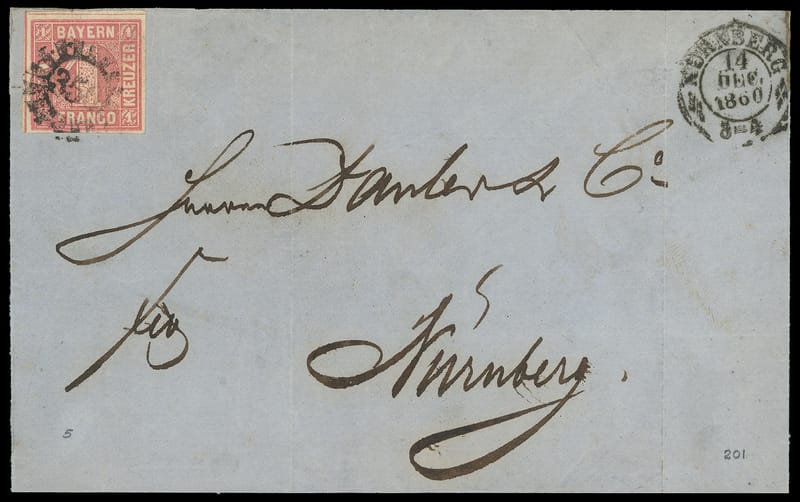 BAYERN
KREUZER
FRANCO
NÜRNBERG
14
DEC.
1860
3-4
Herren Dauber & Co
Nürnberg.
5
201